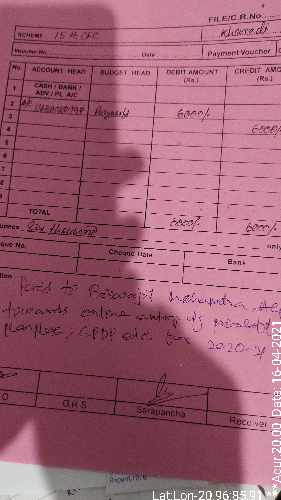 FILE/C.R.No.....
SCHEME : 15 th CFC
Khairadi
Voucher No.
Date
Payment Voucher
No.
ACCOUNT HEAD
BUDGET HEAD
DEBIT AMOUNT (Rs.)
CREDIT AMO (Rs.)
1
CASH / BANK / ADV / PL A/C
2
6000/-
3
6000/-
4
5
6
7
8
9
TOTAL
6000/-
6000/-
upees Six thousand
only
que No.
Cheque Date
Bank
tion Paid to
towards online entry of
GPDP etc for 2020-21
O
G.R.S
Sarapancha
Receiver
Lat:Lon-20.96:85.91
***Acur:20.00 Date:16-04-2021